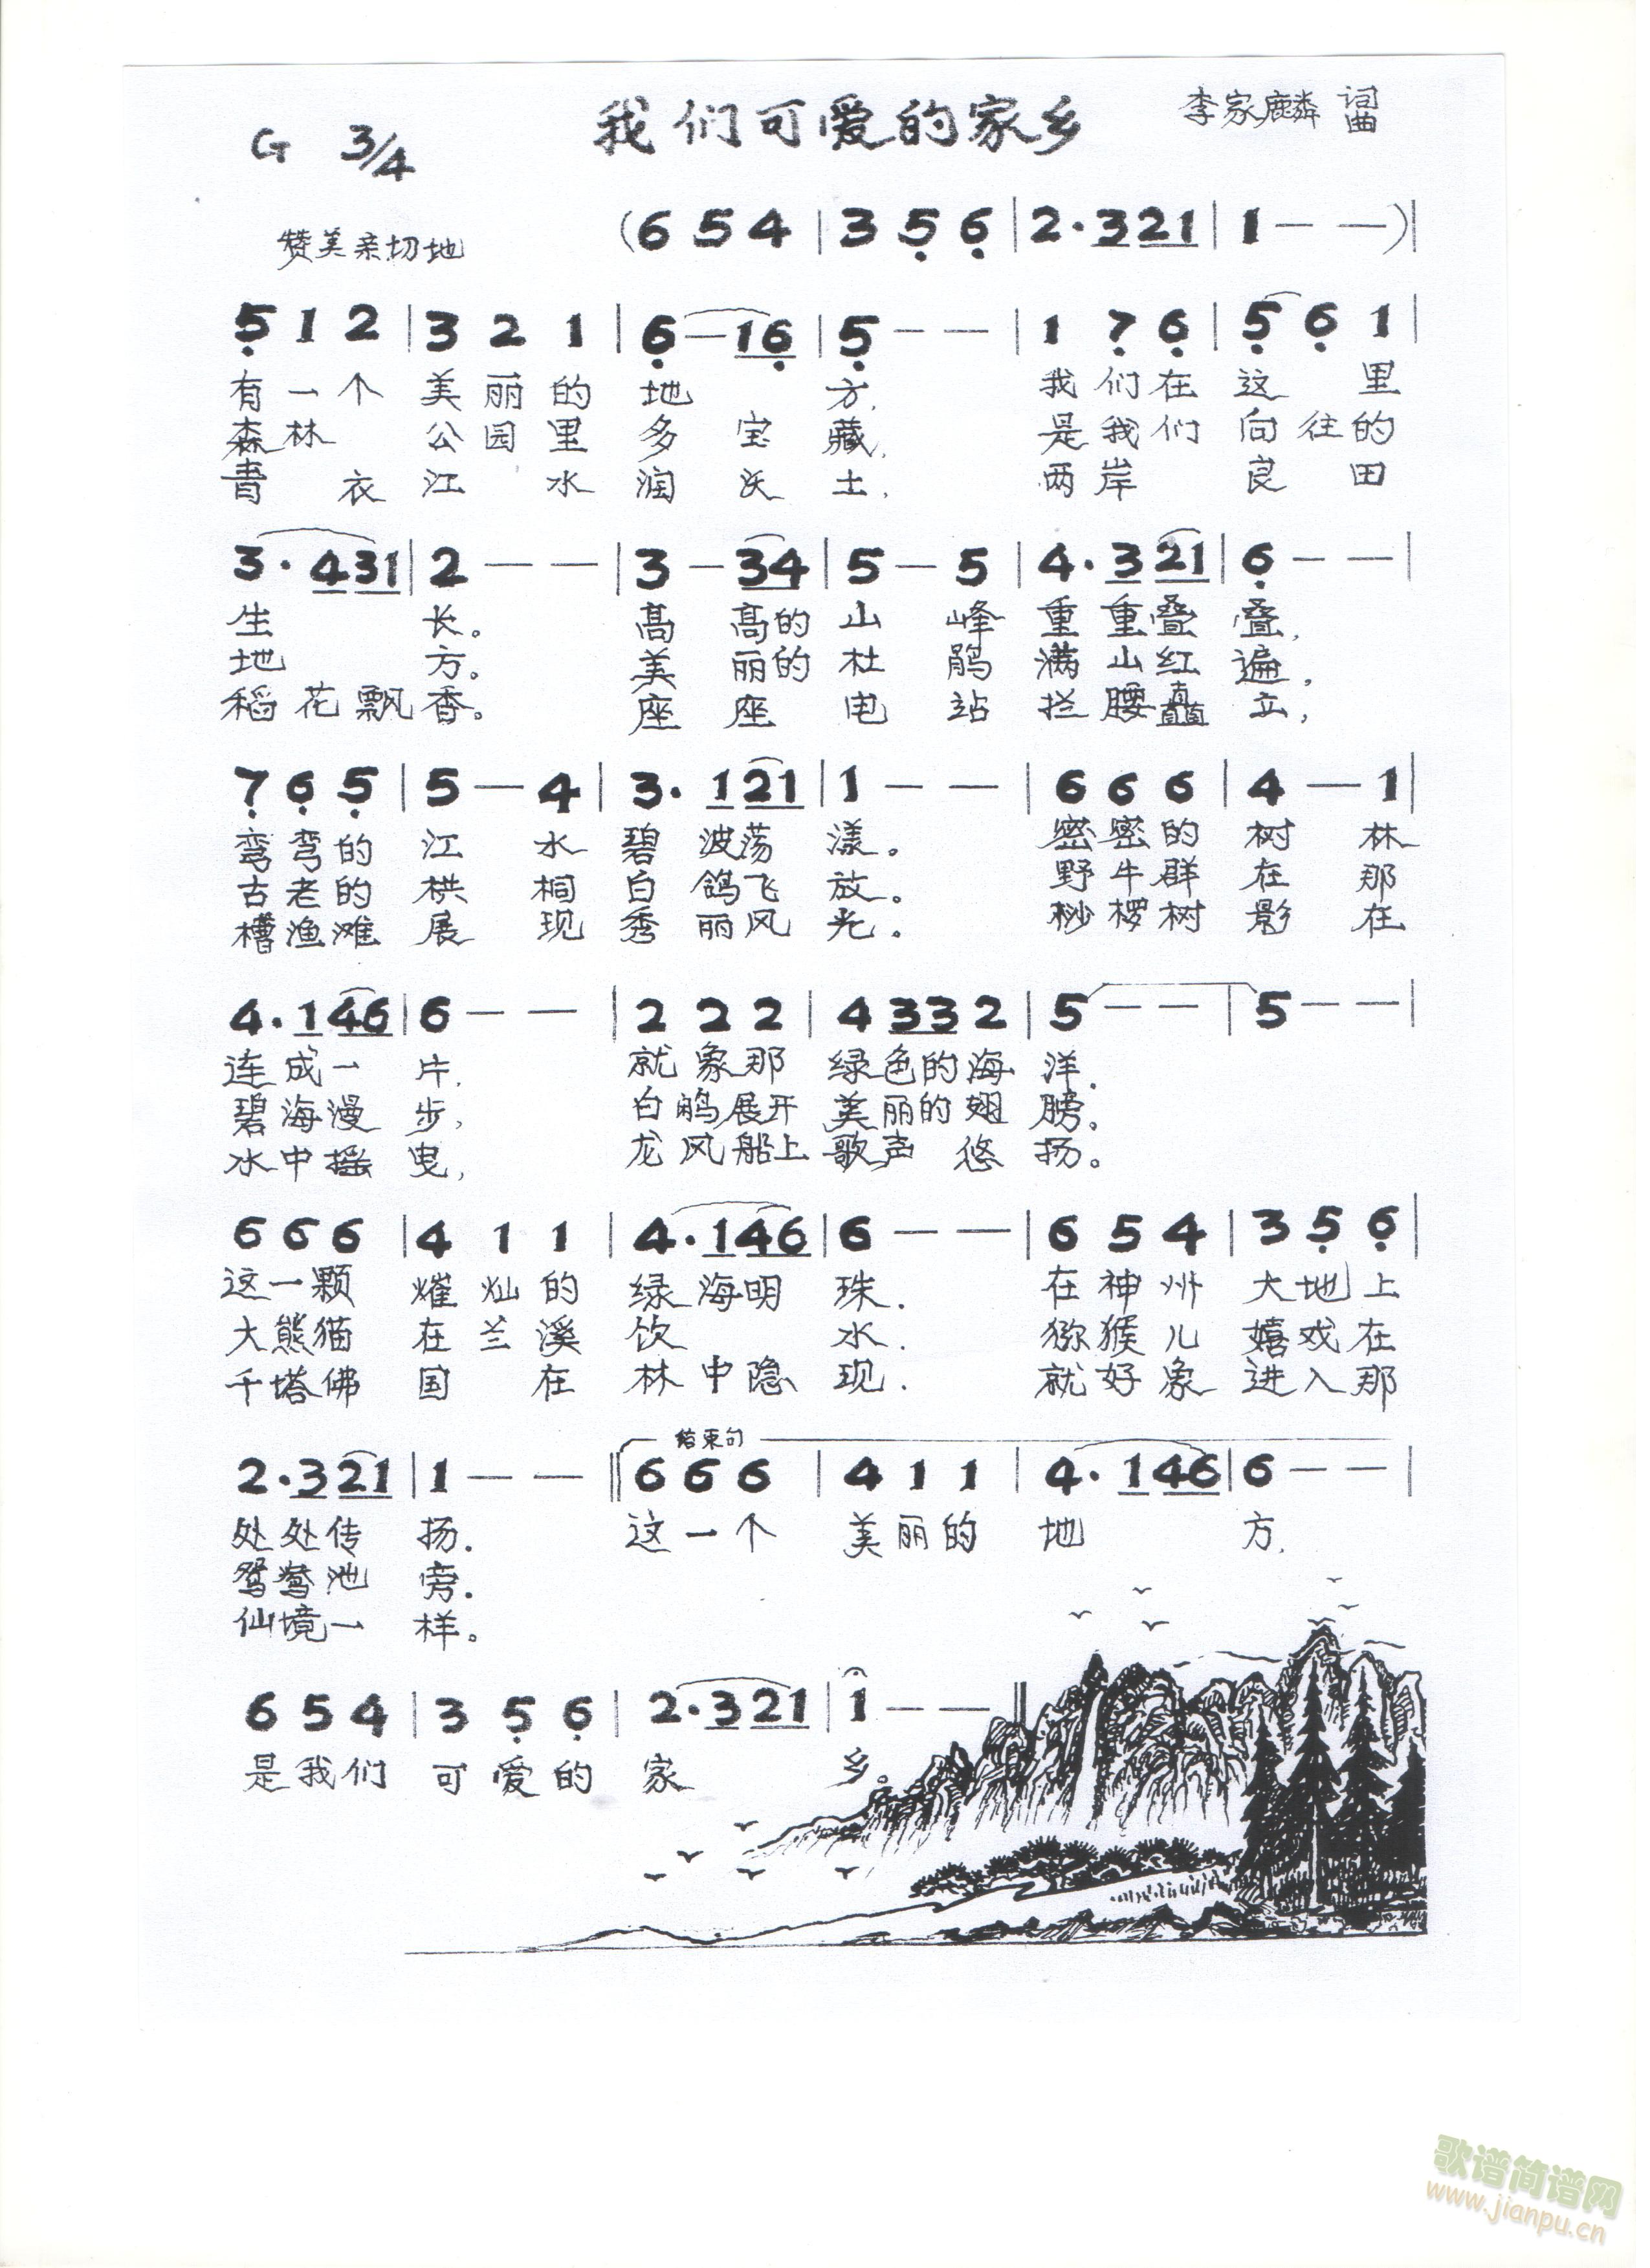 我们可爱的家乡
李家麟 词曲
G 3/4
赞美亲切地
(6 5 4 | 3 5̣ 6̣ | 2·3 2 1 | 1 — —)|
5̣ 1 2 | 3 2 1 | 6̣ — 1 6̣ | 5̣ — — | 1 7̣ 6̣ | 5̣ 6̣ 1 |
有一个 美丽的 地 方, 我们在 这 里
森林 公园里 多 宝 藏, 是我们 向往的
青 衣 江 水 润 沃 土, 两岸 良 田
3·4 3 1 | 2 — — | 3 — 3 4 | 5 — 5 | 4·3 2 1 | 6̣ — — |
生 长。 高 高的 山 峰 重重叠 叠,
地 方。 美 丽的 杜 鹃 满山红 遍,
稻花飘 香。 座 座 电 站 拦腰矗 立,
7̣ 6̣ 5̣ | 5 — 4 | 3·1 2 1 | 1 — — | 6 6 6 | 4 — 1 |
弯弯的 江 水 碧波荡 漾。 密密的 树 林
古老的 栱 桐 白鸽飞 放。 野牛群 在 那
槽渔滩 展 现 秀丽风 光。 桫椤树 影 在
4·1 4 6 | 6 — — | 2 2 2 | 4 3 3 2 | 5 — — | 5 — — |
连成一 片, 就象那 绿色的海 洋.
碧海漫 步, 白鹇展开 美丽的翅 膀。
水中摇 曳, 龙风船上 歌声 悠 扬。
6 6 6 | 4 1 1 | 4·1 4 6 | 6 — — | 6 5 4 | 3 5̣ 6̣ |
这一颗 璀灿的 绿海明 珠. 在神州 大地上
大熊猫 在兰溪 饮 水. 猕猴儿 嬉戏在
千塔佛 国 在 林中隐 现. 就好象 进入那
2·3 2 1 | 1 — — ‖ 结束句 6 6 6 | 4 1 1 | 4·1 4 6 | 6 — — |
处处传 扬. 这一个 美丽的 地 方,
鸳鸯池 旁.
仙境一 样。
6 5 4 | 3 5̣ 6̣ | 2·3 2 1 | 1 — — ‖
是我们 可爱的 家 乡。
歌谱简谱网
www.jianpu.cn